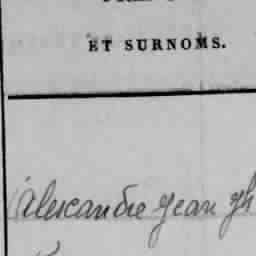 ET SURNOMS.
Alexandre Jean gh